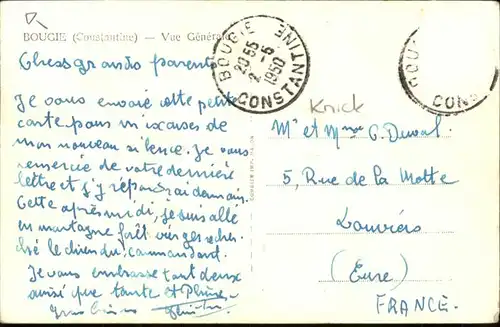 BOUGIE (Constantine) — Vue Générale
Chers grands parents
Je vous envoie cette petite
carte pour m'excuser de
mon nouveau silence. Je vous
remercie de votre dernière
lettre et j'y répondrai demain.
Cette après midi, je suis allé
en montagne forêt vierge cher-
ché le chien du commandant.
Je vous embrasse tout deux
ainsi que tante et
Gros bisous
BOUGIE
20 55
2 - 5
1950
CONSTANTINE
BOU
CONS
Knick
Mr et Mme G. Duval.
5, Rue de la Motte
Louviers
(Eure)
FRANCE.